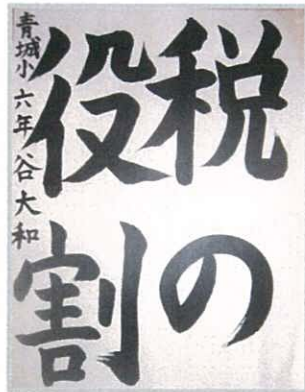 税の
役割
青城小 六年 谷大和